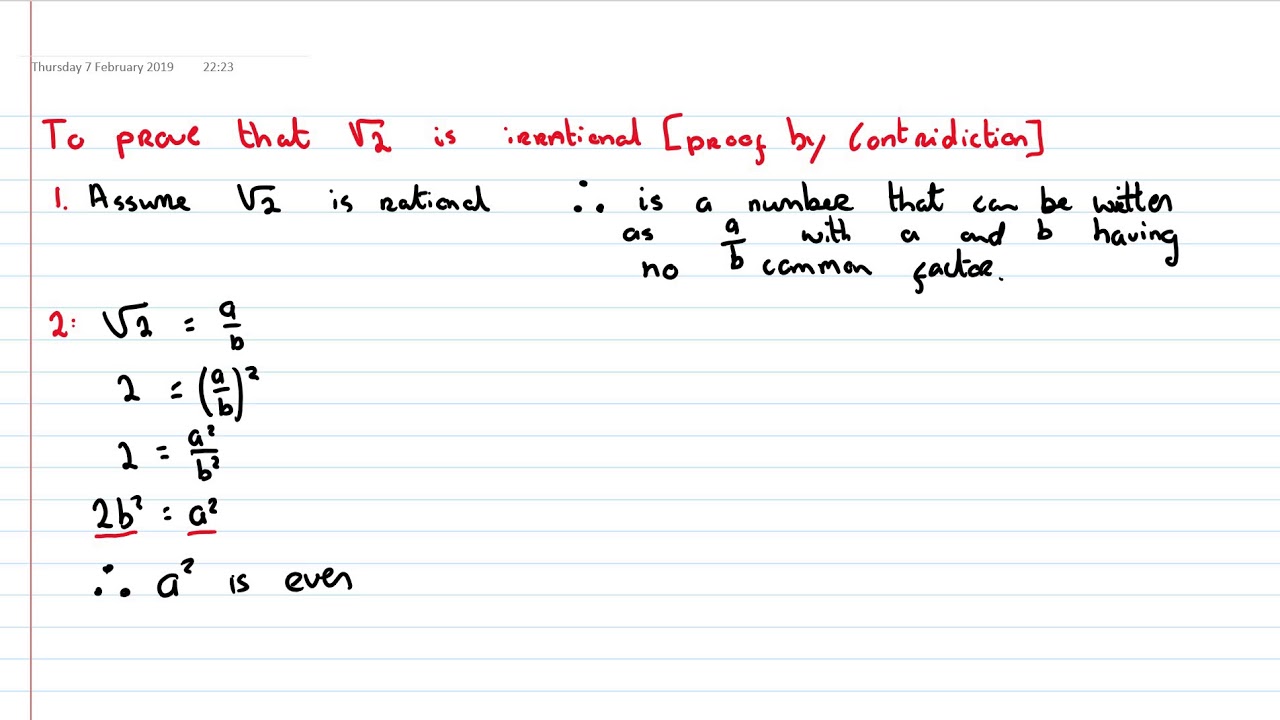 Thursday 7 February 2019 22:23
To prove that √2 is irrational [proof by Contridiction]
1. Assume √2 is rational ∴ is a number that can be written
as a/b with a and b having
no common factor.
2: √2 = a/b
2 = (a/b)²
2 = a²/b²
2b² = a²
∴ a² is even